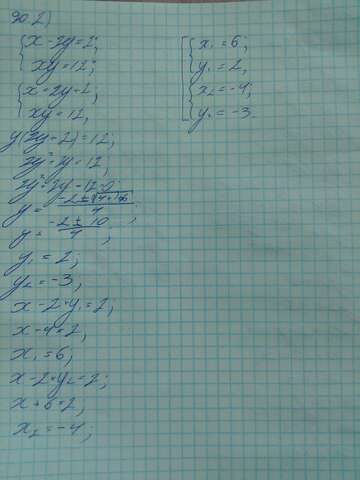 90.2)
x-2y=2;
xy=12;
x=2y+2;
xy=12,
y(2y+2)=12;
2y²+2y=12,
2y²+2y-12=0;
y= -2±√(4+96) / 4 ;
y= -2±10 / 4 ;
y₁=2;
y₂=-3,
x-2·y₁=2;
x-4=2,
x₁=6;
x-2·y₂=2;
x+6=2,
x₂=-4;
x₁=6;
y₁=2,
x₂=-4;
y₂=-3.